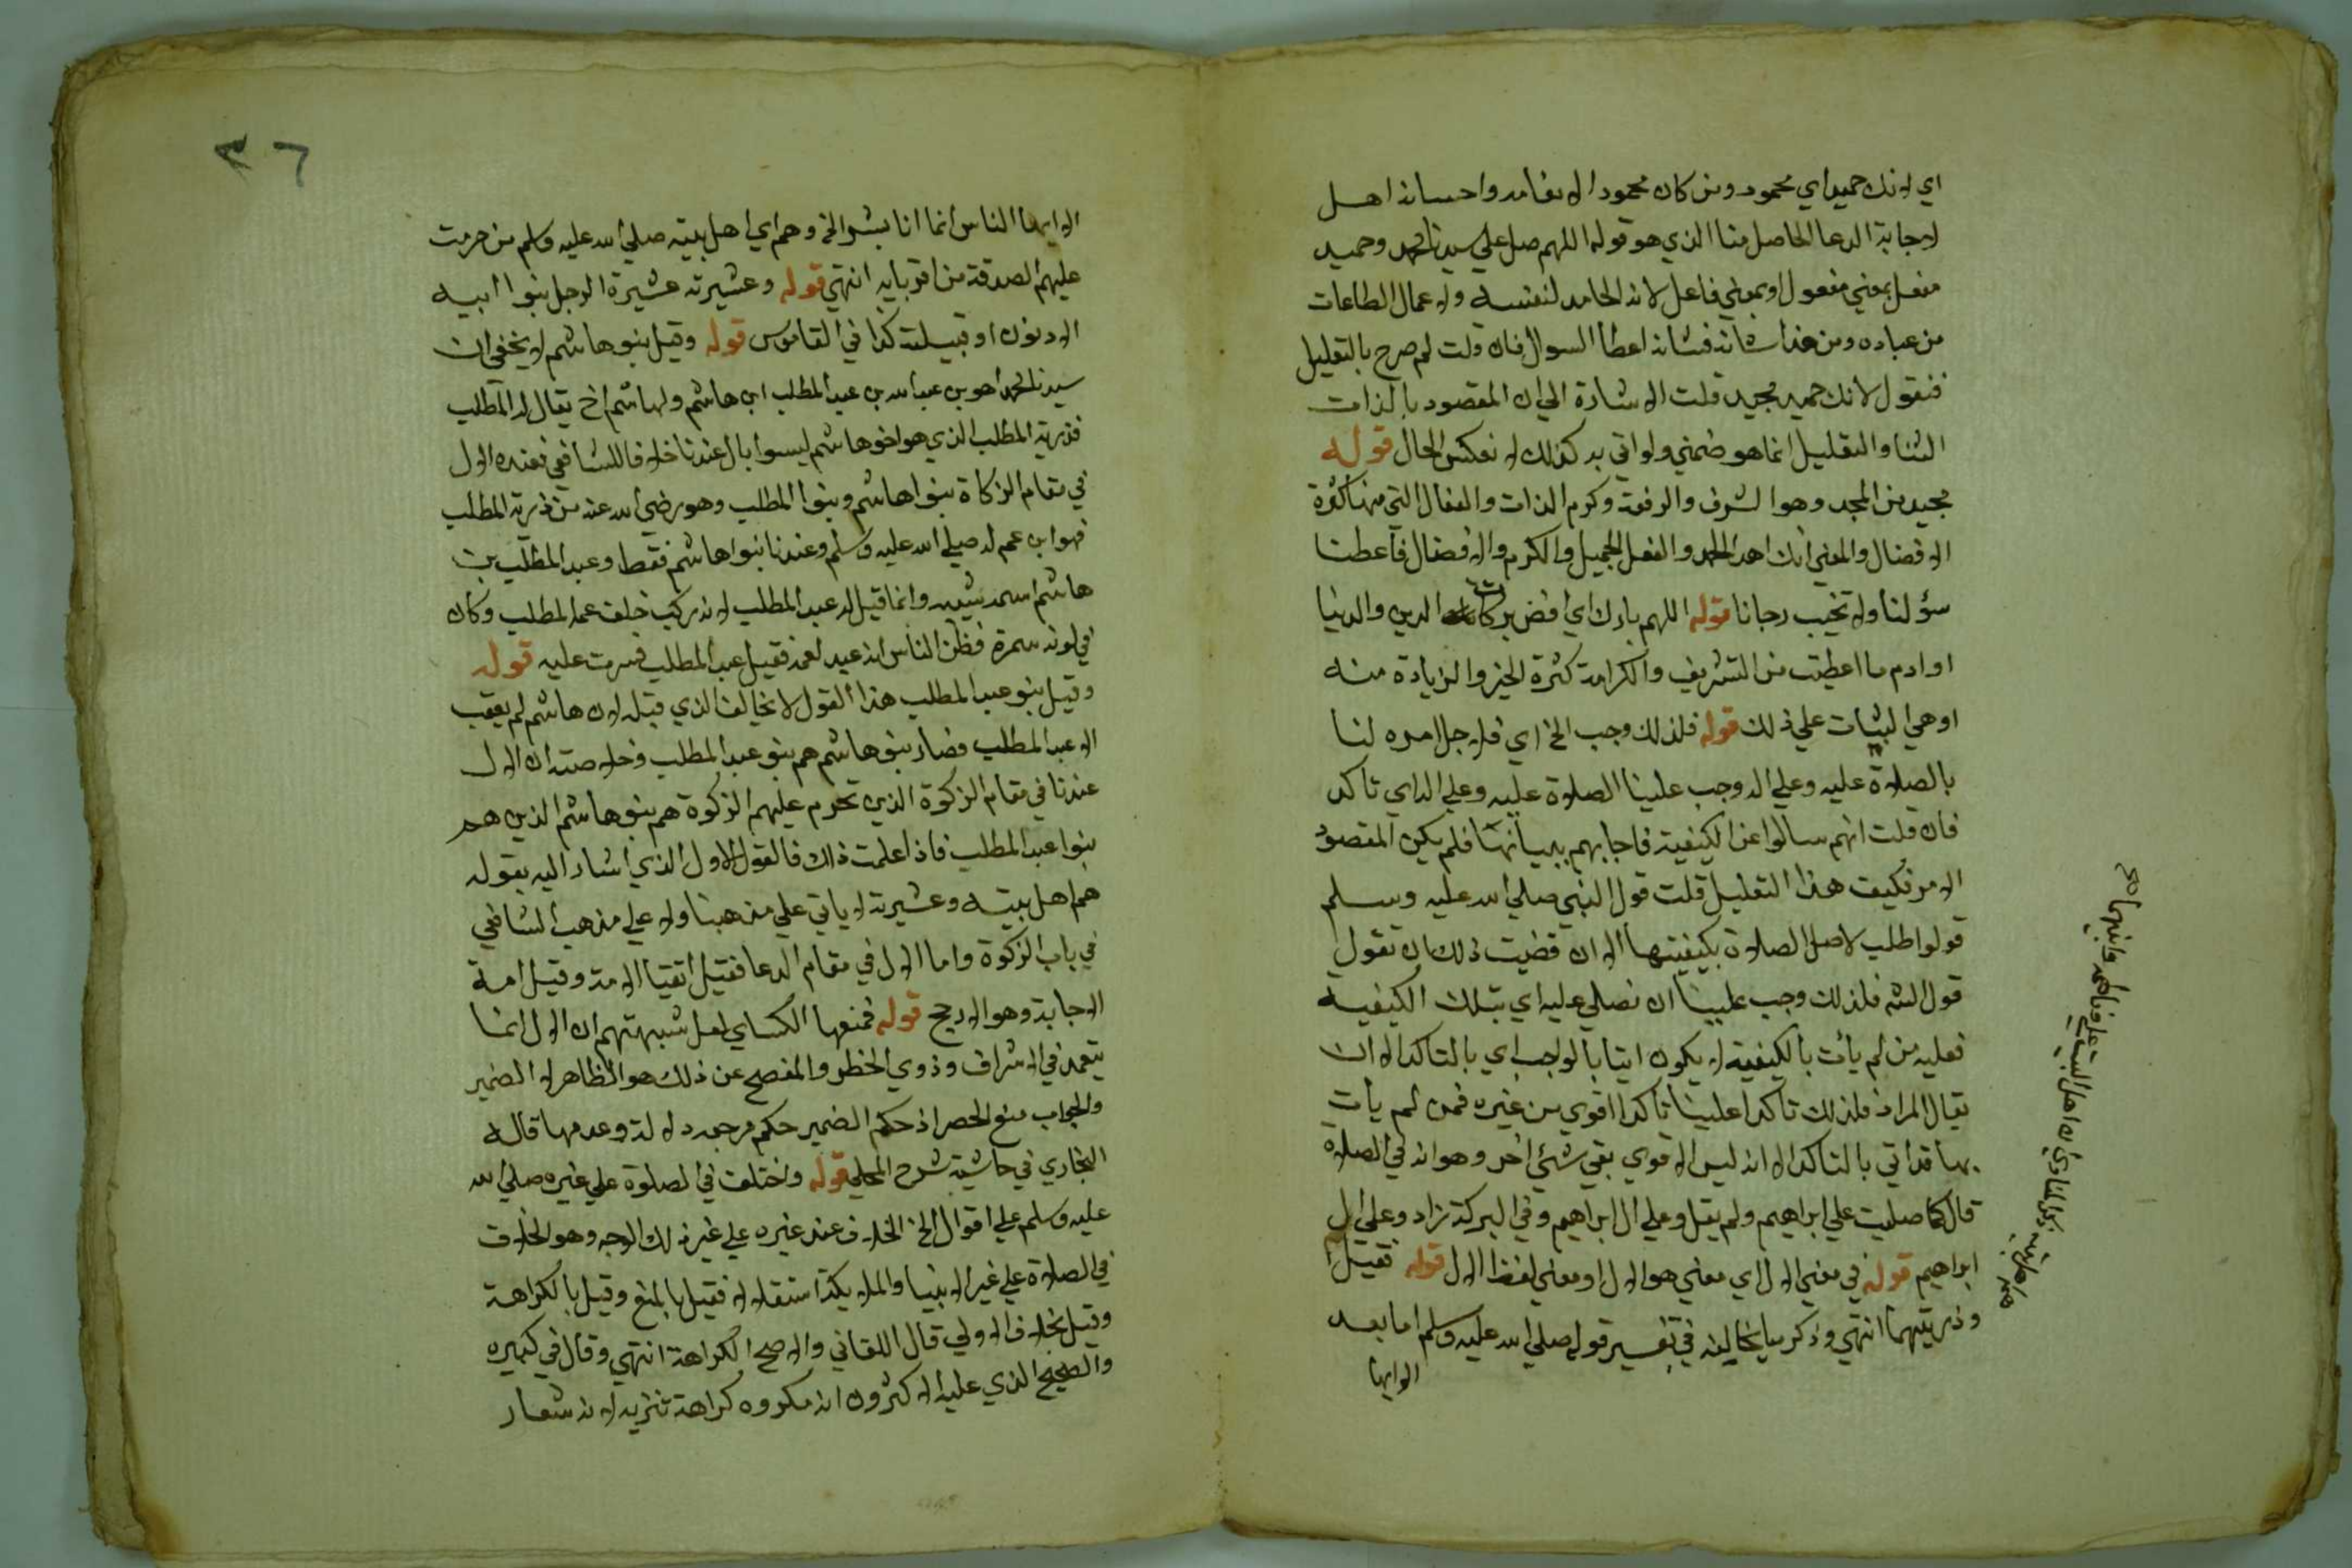 اي لانك حميد اي محمود ومن كان محمودا لانعامه واحسانه اهل
لاجابة الدعا الحاصل منا الذي هو قوله اللهم صل علي سيدنا محمد وحميد
فعيل بمعني مفعول او بمعني فاعل لانه الحامد لنفسه ولاعمال الطاعات
من عباده ومن هذا شانه فشانه اعطا السوال فان قلت لم صرح بالتعليل
فنقول لانك حميد مجيد قلت الاشارة الي ان المقصود بالذات
الثنا والتعليل انما هو ضمني ولو اتي به كذلك لانعكس الحال قوله
مجيد من المجد وهو الشرف والرفعة وكرم الذات والفعال التي منها كثرة
الافضال والمعني انك اهل الحمد والفعل الجميل والكرم والافضال فأعطنا
سؤلنا ولا تخيب رجانا قوله اللهم بارك اي افض بركات الدين والدنيا
او ادم ما اعطيت من التشريف والكرامة كثرة الخير والزيادة منه
او هي الثبات علي ذلك قوله فلذلك وجب الخ اي فلاجل امره لنا
بالصلاة عليه وعلي اله وجب علينا الصلاة عليه وعلي اله اي تاكد
فان قلت انهم سالوا عن الكيفية فاجابهم ببيانها فلم يكن المقصود
الامر فكيف هذا التعليل قلت قول النبي صلي الله عليه وسلم
قولوا طلب لاصل الصلاة بكيفيتها الا ان قضيت ذلك ان تقول
قول الش فلذلك وجب علينا ان نصلي عليه اي بتلك الكيفية
فعليه من لم يأت بالكيفية لا يكون اتيا بالواجب اي بالتاكد الا ان
يقال المراد فلذلك تاكدا علينا تاكدا اقوي من غيره فمن لم يأت
بها قد اتي بالتاكد الا انه ليس الاقوي بقي شئ اخر وهو انه في الصلاة
قال كما صليت علي ابراهيم ولم يقل وعلي ال ابراهيم وفي البركة زاد وعلي ال
ابراهيم قوله في معني الال اي معني هو الال او معني لفظ الال قوله فقيل
وذريتهما انتهي وذكر ما يخالفه في تفسير قوله صلي الله عليه وسلم اما بعد
الا ايها
هم اهل بيته ذكر المناوي ان اهل البيت علي وفاطمة وابنيهما صح
٣٦
الا ايها الناس انما انا بشر الخ وهم اي اهل بيته صلي الله عليه وسلم من حرمت
عليهم الصدقة من اقربايه انتهي قوله وعشيرته عشيرة الرجل بنوا ابيه
الادنون او قبيلته كذا في القاموس قوله وقيل بنو هاشم لا يخفي ان
سيدنا محمدا هو بن عبد الله بن عبد المطلب ابن هاشم ولهاشم اخ يقال له المطلب
فذرية المطلب الذي هو اخو هاشم ليسوا بال عندنا خلافا للشافعي فعنده الال
في مقام الزكاة بنوا هاشم وبنوا المطلب وهو رضي الله عنه من ذرية المطلب
فهو ابن عم له صلي الله عليه وسلم وعندنا بنوا هاشم فقط وعبد المطلب بن
هاشم اسمه شيبه وانما قيل له عبد المطلب لانه ركب خلف عمه المطلب وكان
في لونه سمرة فظن الناس انه عبد لعمه فقيل عبد المطلب فسرت عليه قوله
وقيل بنو عبد المطلب هذا القول لا يخالف الذي قبله لان هاشم لم يعقب
الا عبد المطلب فصار بنو هاشم هم بنو عبد المطلب وخلاصته ان الال
عندنا في مقام الزكوة الذين تحرم عليهم الزكوة هم بنو هاشم الذين هم
بنوا عبد المطلب فاذا علمت ذلك فالقول الاول الذي اشار اليه بقوله
هم اهل بيته وعشيرته لا ياتي علي مذهبنا ولا علي مذهب الشافعي
في باب الزكوة واما الال في مقام الدعا فقيل اتقيا الامة وقيل امة
الاجابة وهو الارجح قوله فمنعها الكساي لعل شبهتهم ان الال انما
يتعمد في الاشراف وذوي الخطر والمفصح عن ذلك هو الظاهر لا الضمير
والجواب منع الحصر اذ حكم الضمير حكم مرجعه دلالة وعدمها قاله
البخاري في حاشية شرح المحلي قوله واختلف في الصلوة علي غيره صلي الله
عليه وسلم علي اقوال الخ الخلاف عند غيره علي غير ذلك الوجه وهو الخلاف
في الصلاة علي غير الانبيا والملايكة استقلالا فقيل بالمنع وقيل بالكراهة
وقيل بخلاف الاولي قال اللقاني والاصح الكراهة انتهي وقال في كبيره
والصحيح الذي عليه الاكثرون انه مكروه كراهة تنزيه لانه شعار